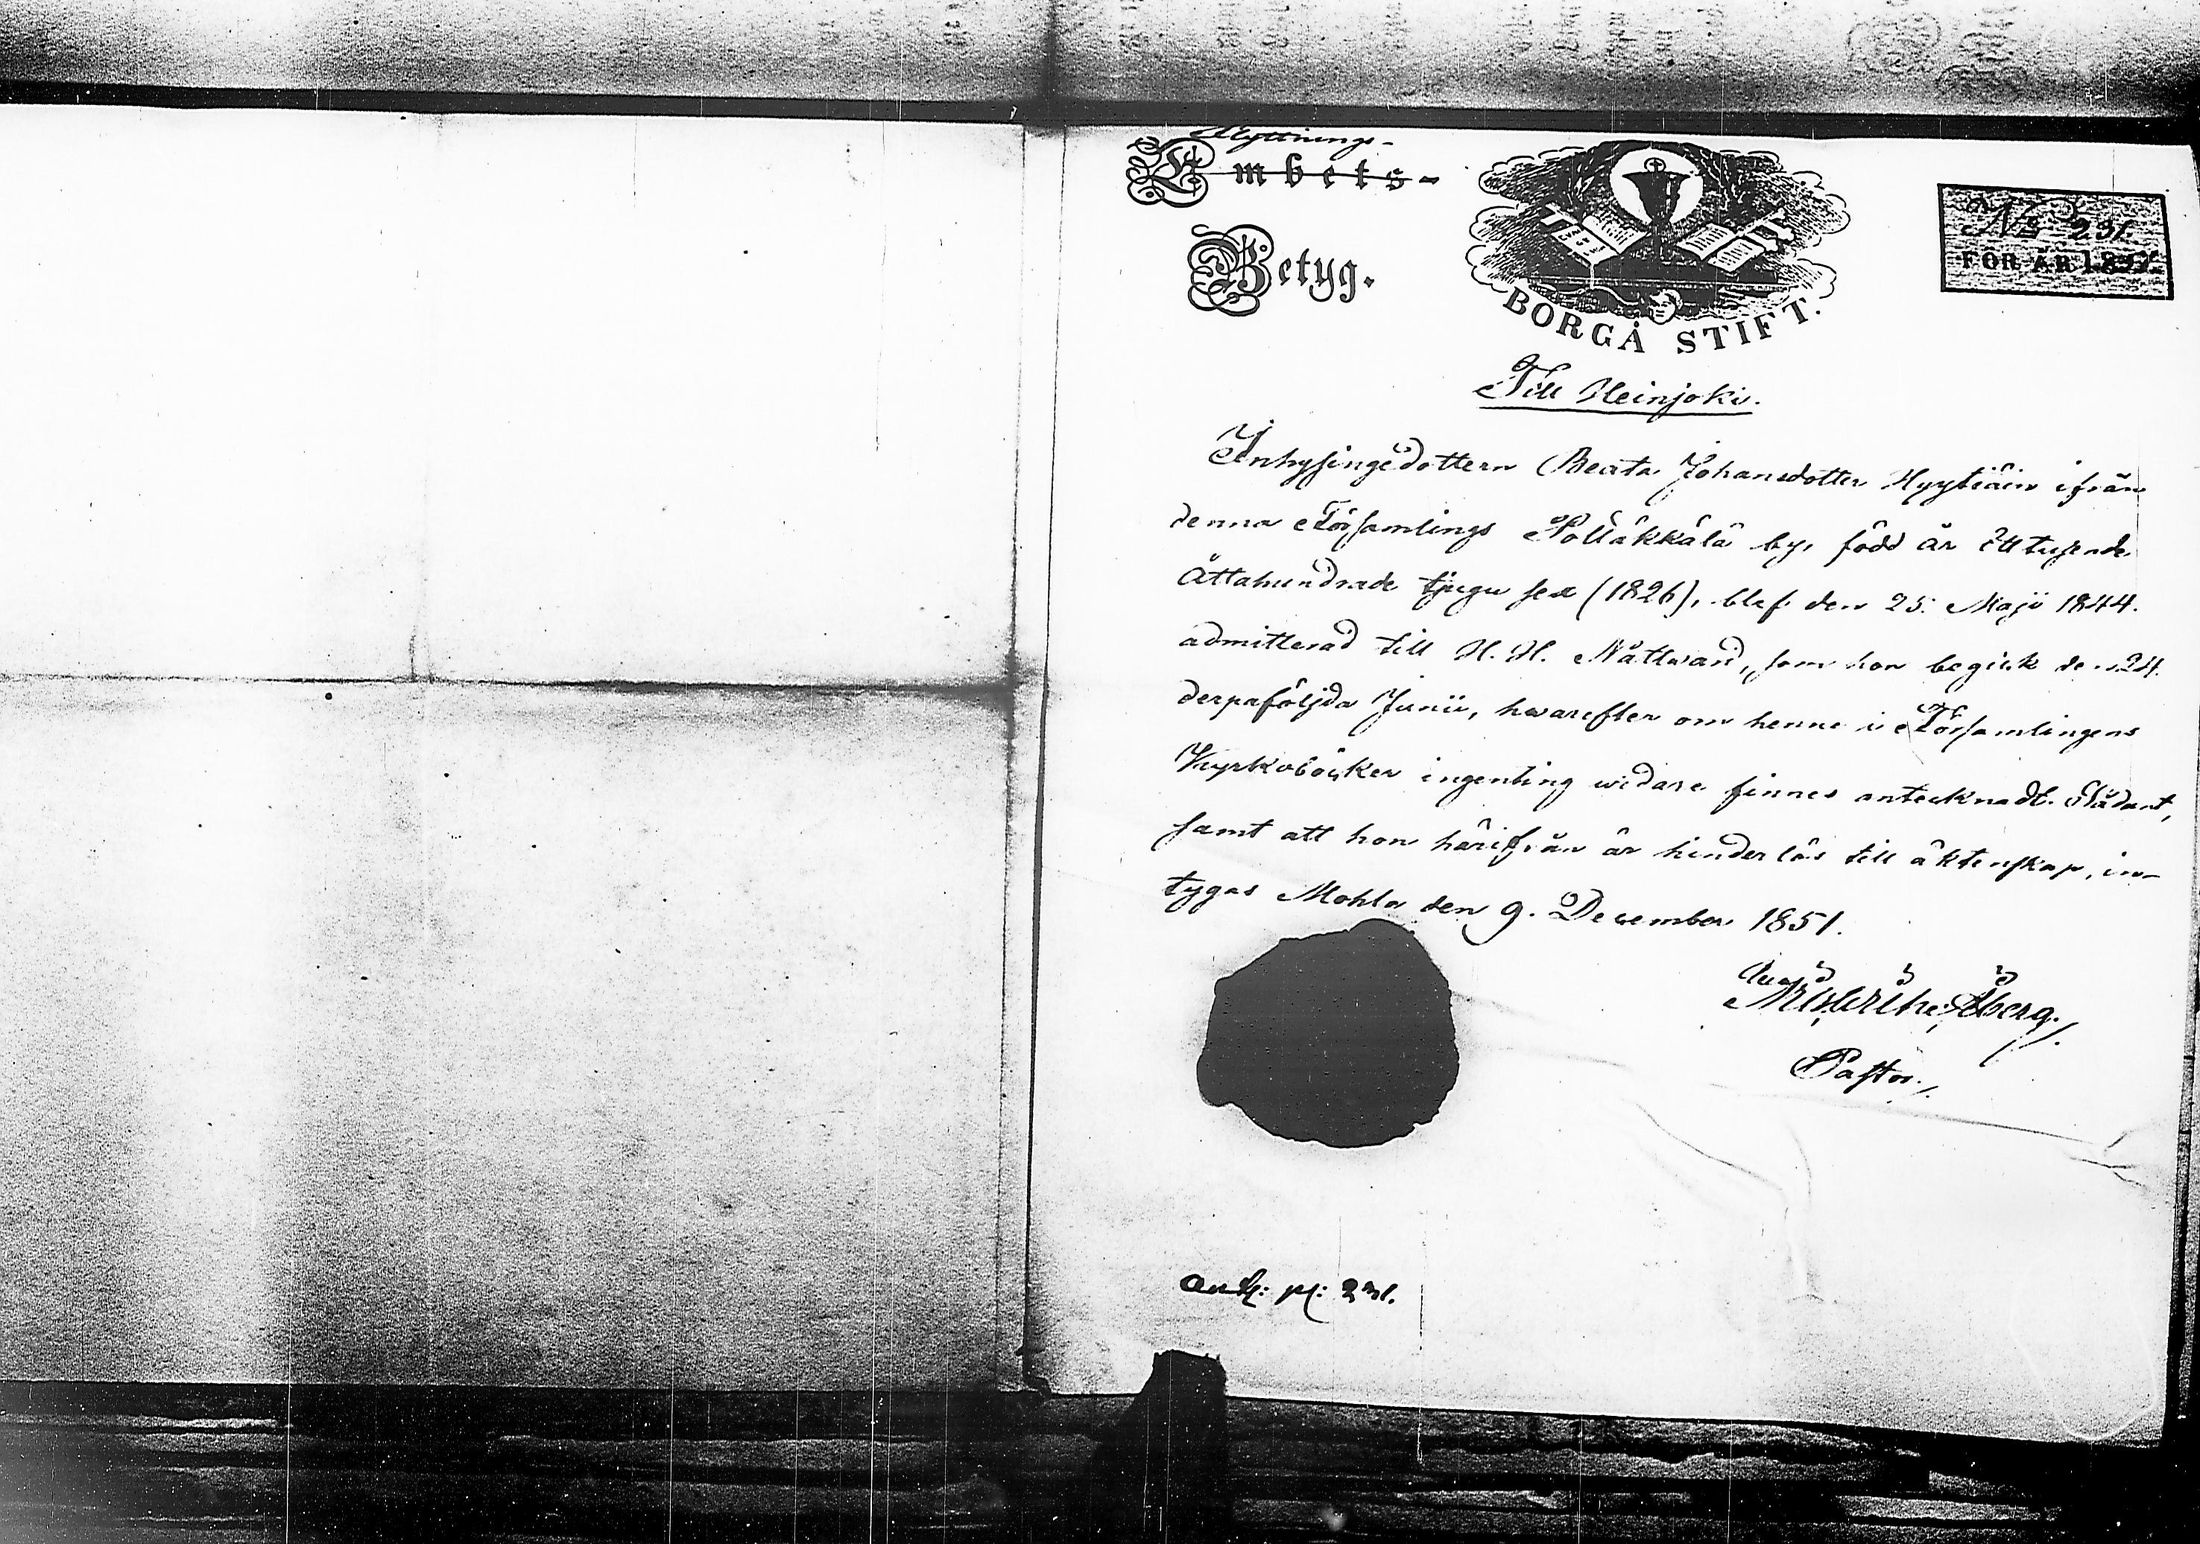 Flyttnings-
Embets-
Betyg.
BORGÅ STIFT.
No 231.
FÖR ÅR 1851.
Till Heinjoki.
Inhysingedottern Beata Johansdotter Hyytiäin ifrån
denna Församlings Pölläkkälä by, född år Ett tusende
Åttahundrade tjugu sex (1826), blef den 25. Maji 1844.
admitterad till H. H. Nattward, som hon begick den 24.
derpåföljda Junii, hwarefter om henne i Församlingens
Kyrkoböcker ingenting widare finnes antecknadt. Sådant,
samt att hon härifrån är hinderlös till äktenskap, in-
tygas Mohla den 9. December 1851.
Åberg.
Pastor.
231.